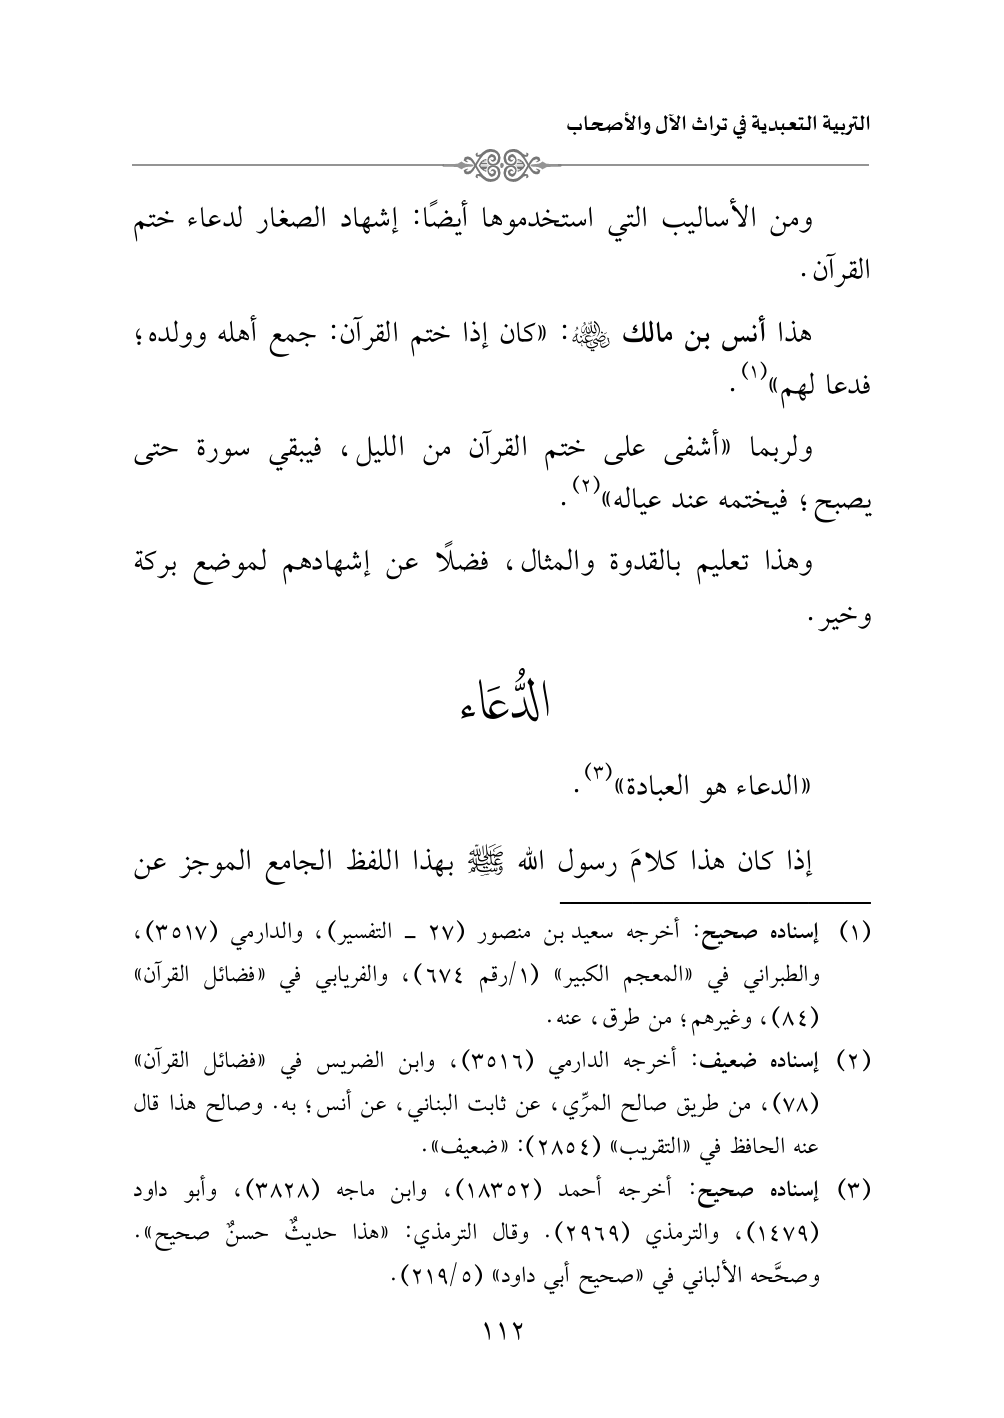 التربية التعبدية في تراث الآل والأصحاب
ومن الأساليب التي استخدموها أيضًا: إشهاد الصغار لدعاء ختم
القرآن.
هذا أنس بن مالك رضي الله عنه: «كان إذا ختم القرآن: جمع أهله وولده؛
فدعا لهم»(١).
ولربما «أشفى على ختم القرآن من الليل، فيبقي سورة حتى
يصبح؛ فيختمه عند عياله»(٢).
وهذا تعليم بالقدوة والمثال، فضلًا عن إشهادهم لموضع بركة
وخير.
الدُّعَاء
«الدعاء هو العبادة»(٣).
إذا كان هذا كلامَ رسول الله ﷺ بهذا اللفظ الجامع الموجز عن
(١) إسناده صحيح: أخرجه سعيد بن منصور (٢٧ ـ التفسير)، والدارمي (٣٥١٧)،
والطبراني في «المعجم الكبير» (١/رقم ٦٧٤)، والفريابي في «فضائل القرآن»
(٨٤)، وغيرهم؛ من طرق، عنه.
(٢) إسناده ضعيف: أخرجه الدارمي (٣٥١٦)، وابن الضريس في «فضائل القرآن»
(٧٨)، من طريق صالح المرِّي، عن ثابت البناني، عن أنس؛ به. وصالح هذا قال
عنه الحافظ في «التقريب» (٢٨٥٤): «ضعيف».
(٣) إسناده صحيح: أخرجه أحمد (١٨٣٥٢)، وابن ماجه (٣٨٢٨)، وأبو داود
(١٤٧٩)، والترمذي (٢٩٦٩). وقال الترمذي: «هذا حديثٌ حسنٌ صحيح».
وصحَّحه الألباني في «صحيح أبي داود» (٢١٩/٥).
١١٢